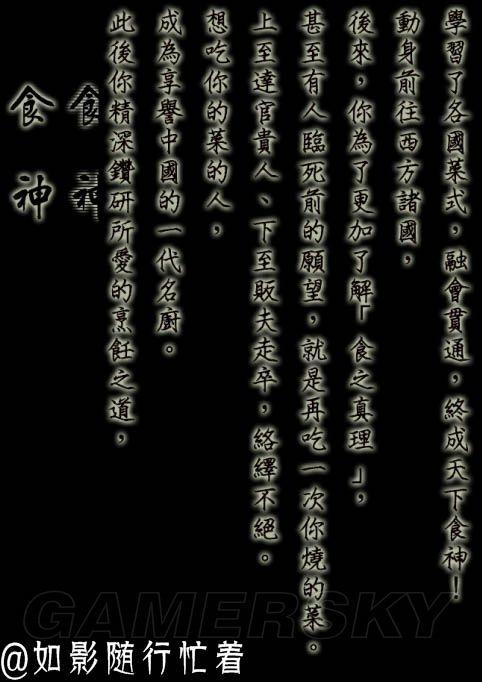 食神
食神
此後你精深鑽研所愛的烹飪之道，
成為享譽中國的一代名廚。
想吃你的菜的人，
上至達官貴人、下至販夫走卒，絡繹不絕。
甚至有人臨死前的願望，就是再吃一次你燒的菜。
後來，你為了更加了解「食之真理」，
動身前往西方諸國，
學習了各國菜式，融會貫通，終成天下食神！
GAMERSKY
@如影随行忙着